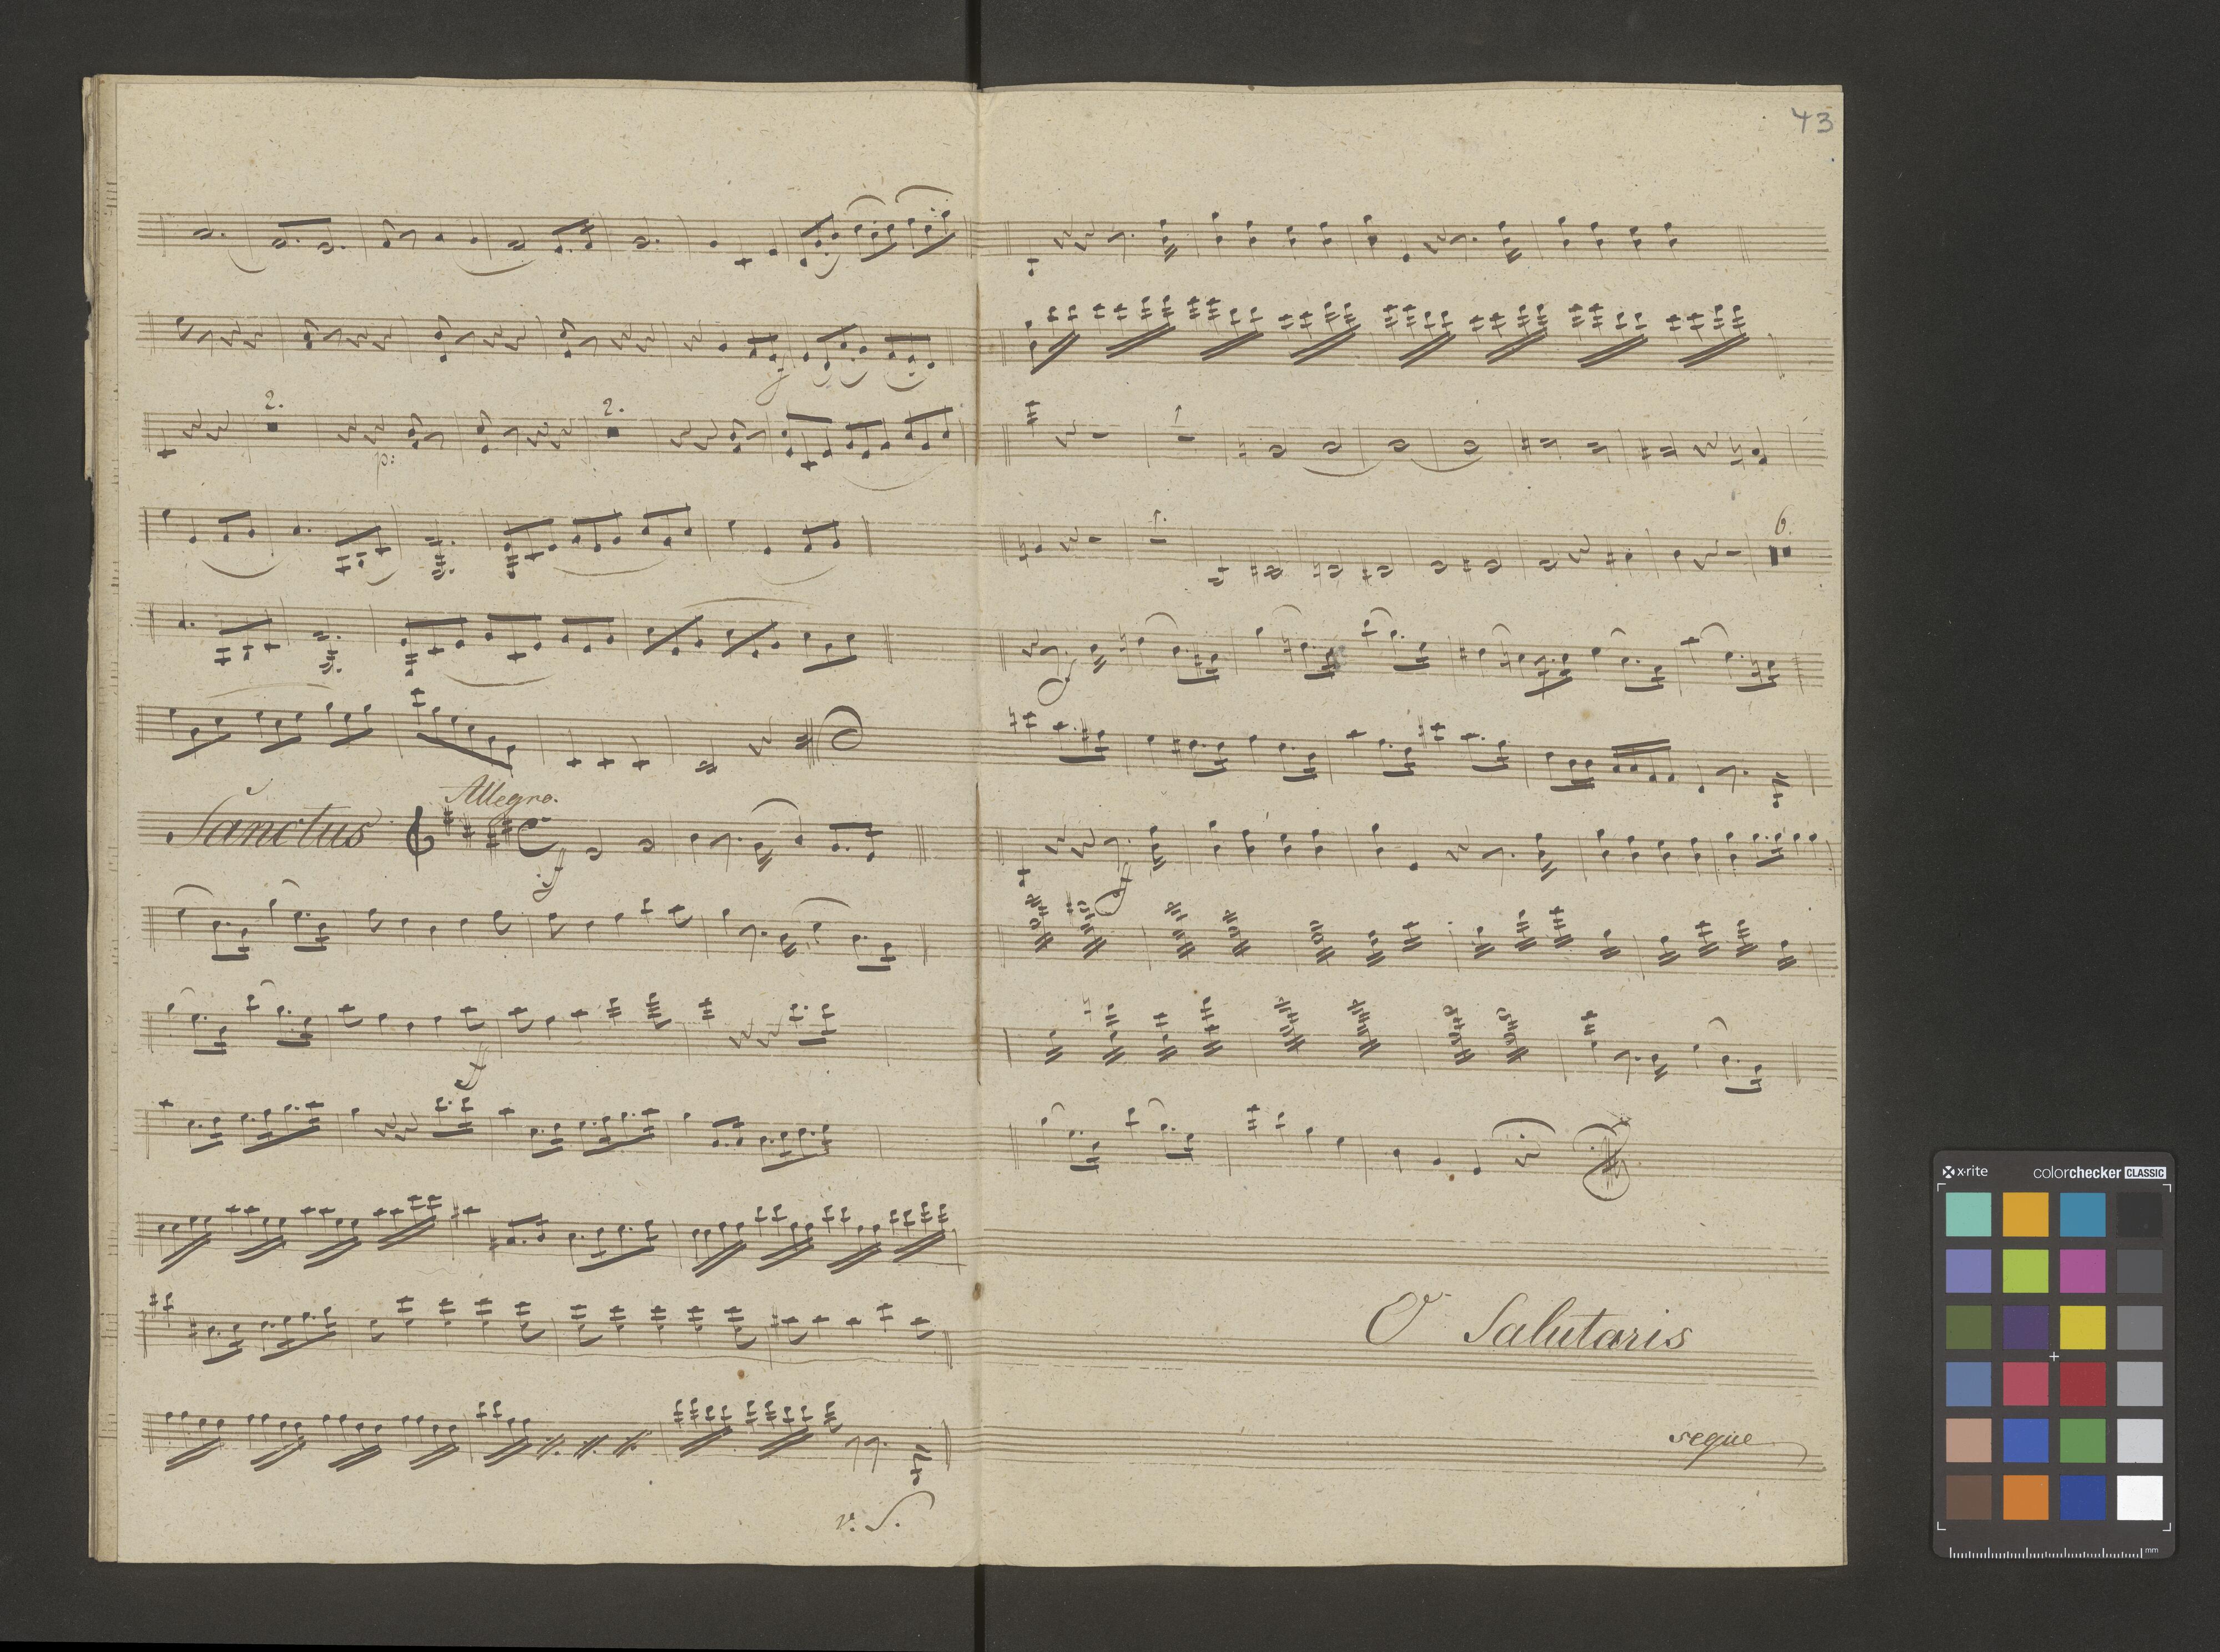 2.
2.
p:
f
Allegro.
Sanctus
ff
ff
v. S.
43
1
1.
6.
f
ff
O Salutaris
segue
x-rite
colorchecker CLASSIC
mm